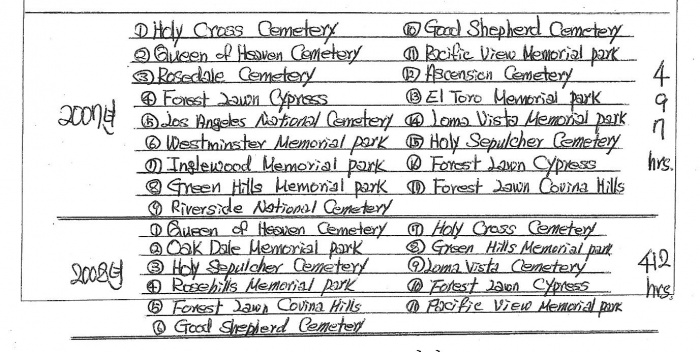 ① Holy Cross Cemetery ⑩ Good Shepherd Cemetery
② Queen of Heaven Cemetery ⑪ Pacific View Memorial park
③ Rosedale Cemetery ⑫ Ascension Cemetery 4
④ Forest Lawn Cypress ⑬ El Toro Memorial park 9
2007년 ⑤ Los Angeles National Cemetery ⑭ Loma Vista Memorial park 7
⑥ Westminster Memorial park ⑮ Holy Sepulcher Cemetery
⑦ Inglewood Memorial park ⑯ Forest Lawn Cypress hrs.
⑧ Green Hills Memorial park ⑰ Forest Lawn Covina Hills
⑨ Riverside National Cemetery
① Queen of Heaven Cemetery ⑦ Holy Cross Cemetery
② Oak Dale Memorial park ⑧ Green Hills Memorial park
2008년 ③ Holy Sepulcher Cemetery ⑨ Loma Vista Cemetery 412
④ Rosehills Memorial park ⑩ Forest Lawn Cypress hrs.
⑤ Forest Lawn Covina Hills ⑪ Pacific View Memorial park
⑥ Good Shepherd Cemetery